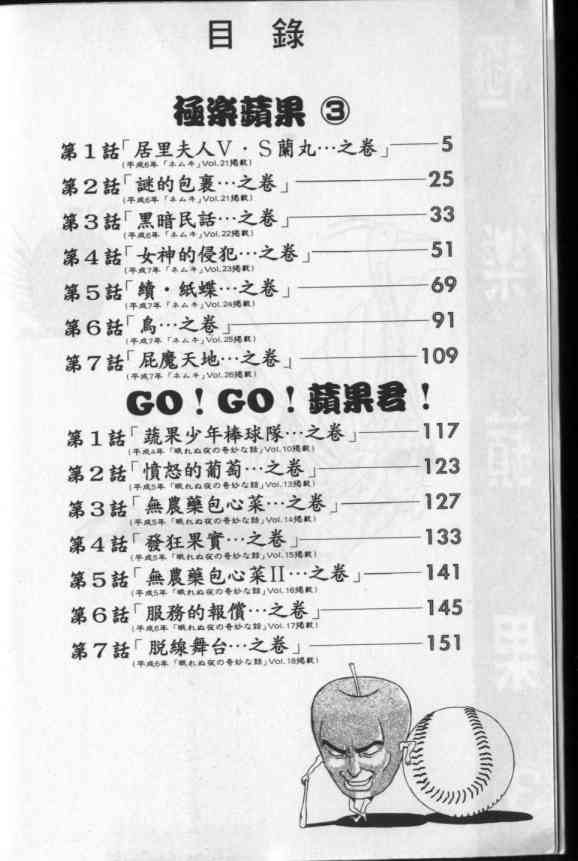 目 錄
極楽蘋果 ③
第1話「居里夫人V・S蘭丸…之卷」——5
(平成6年「ネムキ」Vol.21掲載)
第2話「謎的包裹…之卷」——25
(平成6年「ネムキ」Vol.21掲載)
第3話「黑暗民話…之卷」——33
(平成6年「ネムキ」Vol.22掲載)
第4話「女神的侵犯…之卷」——51
(平成7年「ネムキ」Vol.23掲載)
第5話「續・紙蝶…之卷」——69
(平成7年「ネムキ」Vol.24掲載)
第6話「鳥…之卷」——91
(平成7年「ネムキ」Vol.25掲載)
第7話「屁魔天地…之卷」——109
(平成7年「ネムキ」Vol.26掲載)
GO！GO！蘋果君！
第1話「蔬果少年棒球隊…之卷」——117
(平成4年「眠れぬ夜の奇妙な話」Vol.10掲載)
第2話「憤怒的葡萄…之卷」——123
(平成5年「眠れぬ夜の奇妙な話」Vol.13掲載)
第3話「無農藥包心菜…之卷」——127
(平成5年「眠れぬ夜の奇妙な話」Vol.14掲載)
第4話「發狂果實…之卷」——133
(平成5年「眠れぬ夜の奇妙な話」Vol.15掲載)
第5話「無農藥包心菜II…之卷」——141
(平成5年「眠れぬ夜の奇妙な話」Vol.16掲載)
第6話「服務的報償…之卷」——145
(平成6年「眠れぬ夜の奇妙な話」Vol.17掲載)
第7話「脱線舞台…之卷」——151
(平成6年「眠れぬ夜の奇妙な話」Vol.18掲載)
極
楽
蘋
果